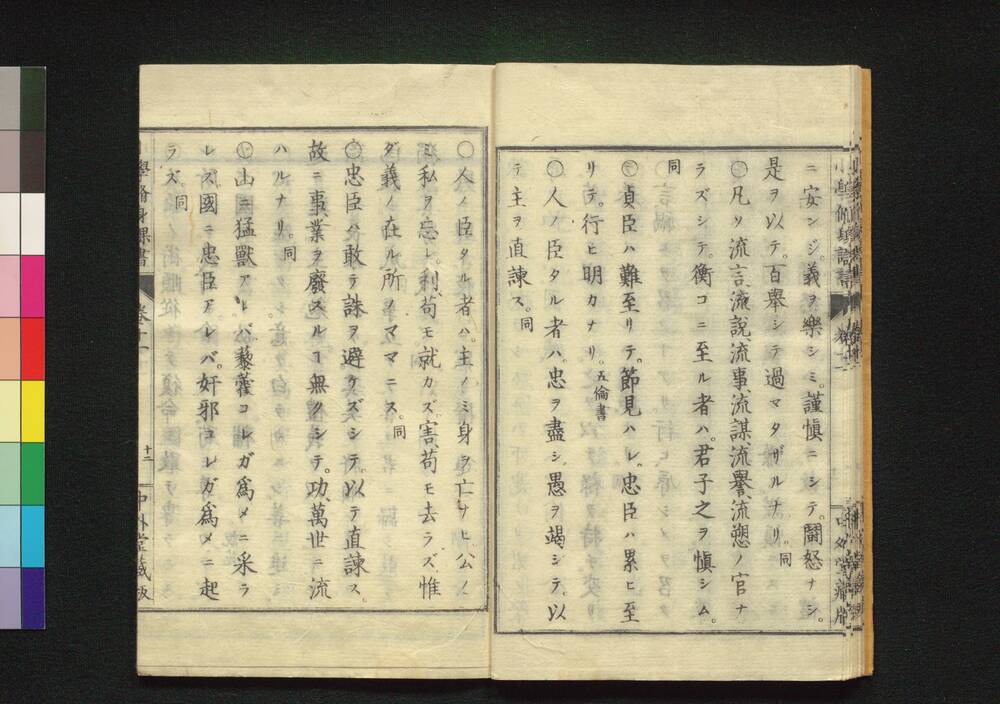 ニ安ンジ。義ヲ樂シミ。謹愼ニシテ。鬪怒ナシ。
是ヲ以テ。百舉シテ過マタザルナリ。同
〇凡ソ流言、流說、流事、流謀、流譽、流愬ノ官ナ
ラズシテ。衡コニ至ル者ハ。君子之ヲ愼シム。
同
〇貞臣ハ難至リテ。節見ハレ。忠臣ハ累ヒ至
リテ。行ヒ明カナリ。五倫書
〇人ノ臣タル者ハ。忠ヲ盡シ。愚ヲ竭シテ。以
テ主ヲ直諫ス。同
〇人ノ臣タル者ハ。主ノミ身ヲ亡サヒ。公ノ
ミ私ヲ忘レ。利、苟モ就カズ。害、苟モ去ラズ。惟
ダ義ノ在ル所ノマヽニス。同
〇忠臣ハ敢テ誅ヲ避ケズシテ。以テ直諫ス。
故ニ事業ヲ廢スルコ無クシテ。功、萬世ニ流
ハルナリ。同
〇山ニ猛獸アレバ。藜藿コレガ爲メニ采ラ
レズ。國ニ忠臣アレバ。奸邪コレガ爲メニ起
ラズ。同
小學脩身課書 卷十二 十二 中外堂藏版